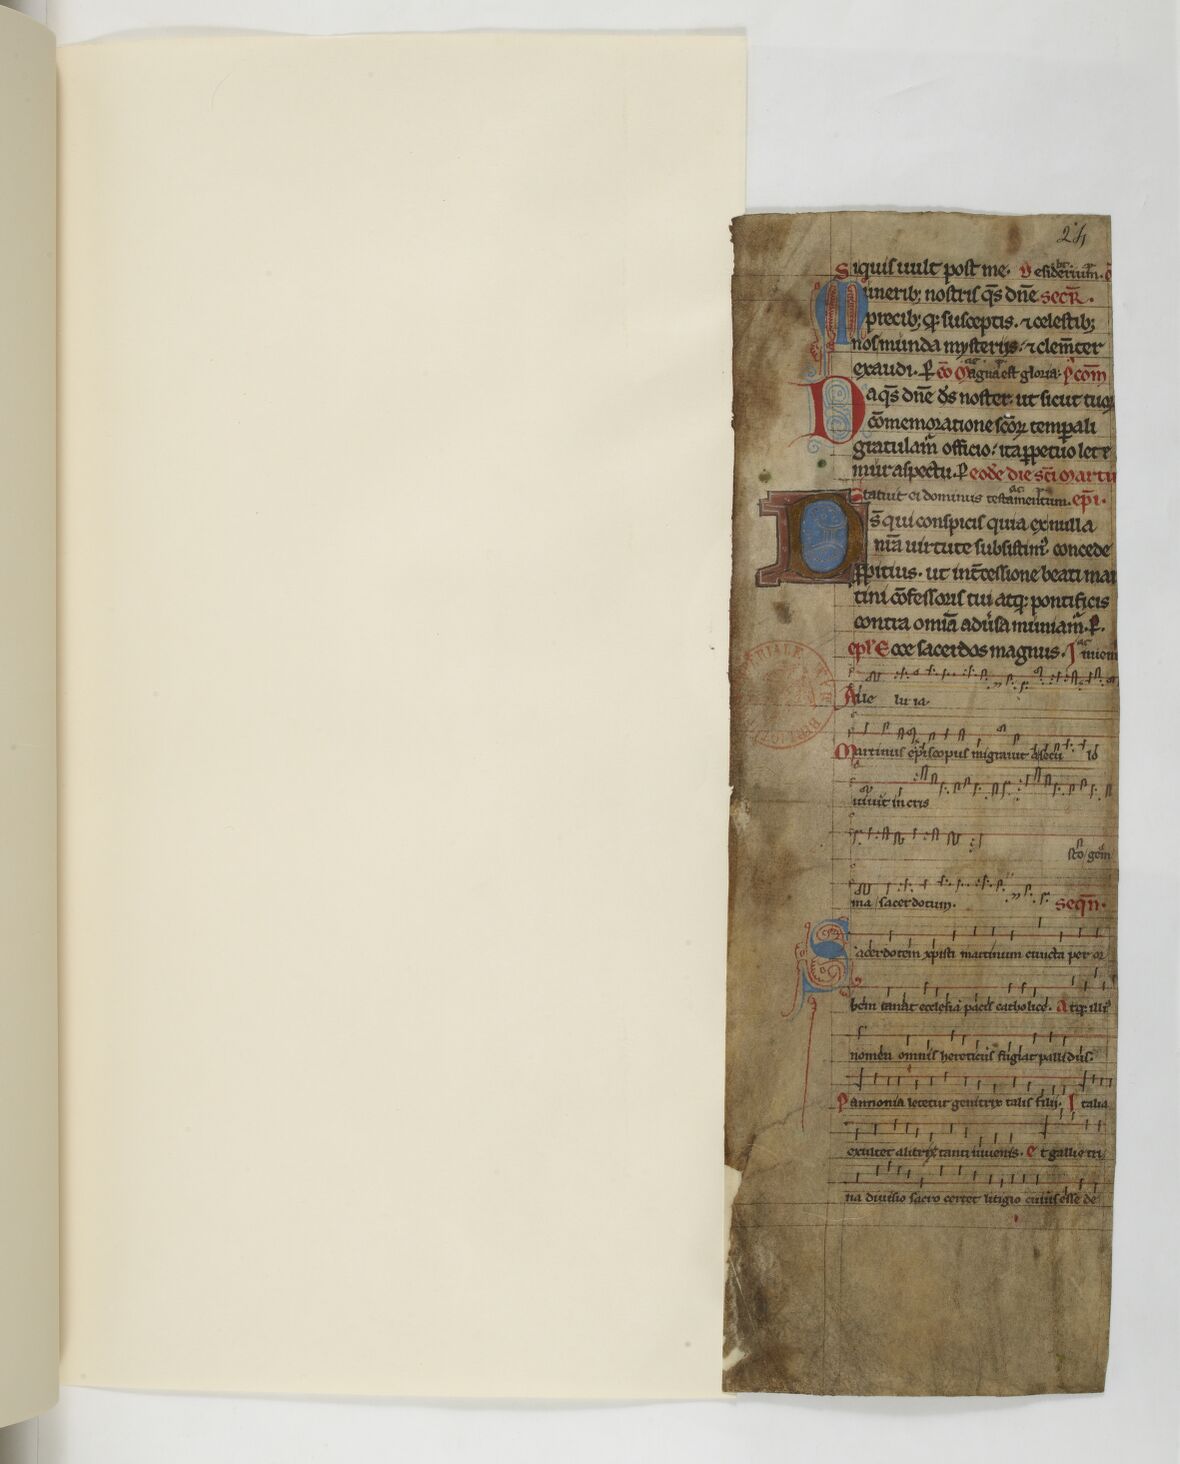 24
Siquis uult post me. V Desiderium.
Munerib; nostris q̄s dn̄e secr̄.
precib; q; susceptis. ⁊ celestib;
nos munda mysterijs. ⁊ clem̄ter
exaudi. P̱ cō Magna est gloria. p̱ cōm
Da q̄s dn̄e d̄s noster. ut sicut tuoꝝ
cōmemoratione sc̄oꝝ temp̱ali
gratulam̄ officio. ita p̱petuo lete
mur aspectu. P̱ eodē die sc̄i Marti
Statuit ei dominus testamentum. ep̄i.
Ds̄ qui conspicis quia ex nulla
nr̄a uirtute subsistim᷒ concede
p̱pitius. ut int̄cessione beati mar
tini cōfessoris tui atq; pontificis
contra om̄ia adūsa muniam̄. P̱.
epl̄ Ecce sacerdos magnus. Inueni
Alle lu ia.
Martinus ep̄iscopus migrauit a secu lo
uiuit in cris
sto gem
ma sacerdotum. seqn̄.
Sacerdotem xp̄isti martinum cuncta per or
bem canat ecclesia pacis catholice. Atq; illi᷒
nomen omnis hereticus fugiat pallidus.
Pannonia letetur genitrix talis filij. Italia
exultet alitrix tanti iuuenis. Et gallie tri
na diuisio sacro certet litigio cuius esse de